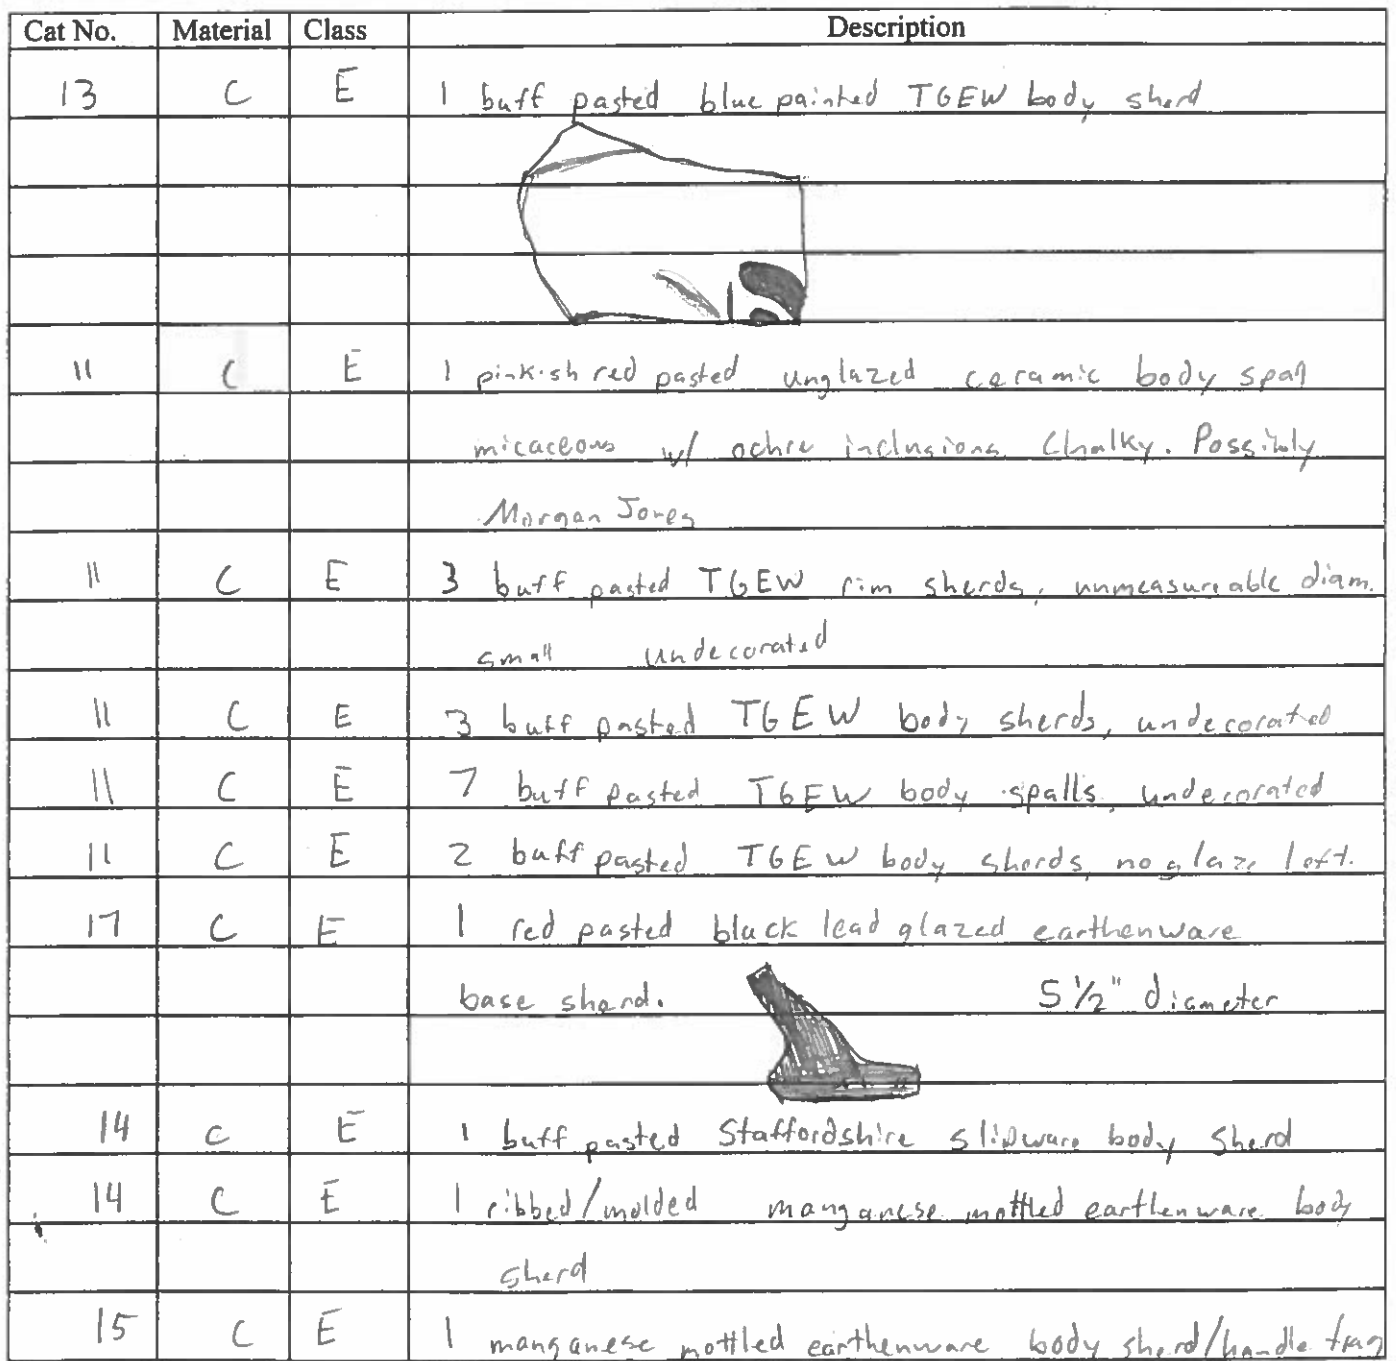 Cat No. Material Class Description
13 C E 1 buff pasted blue painted TGEW body sherd
11 C E 1 pinkish red pasted unglazed ceramic body spall
micaceous w/ ochre inclusions. Chalky. Possibly
Morgan Jones
11 C E 3 buff pasted TGEW rim sherds, unmeasureable diam.
small undecorated
11 C E 3 buff pasted TGEW body sherds, undecorated
11 C E 7 buff pasted TGEW body spalls, undecorated
11 C E 2 buff pasted TGEW body sherds, no glaze left.
17 C E 1 red pasted black lead glazed earthenware
base sherd. 5 1/2" diameter
14 C E 1 buff pasted Staffordshire slipware body sherd
14 C E 1 ribbed/molded manganese mottled earthenware body
sherd
15 C E 1 manganese mottled earthenware body sherd/handle frag